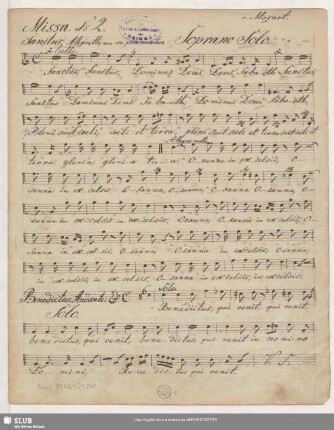 Mozart.
Missa No 2.
Sanctus, Soprano Solo.
Solo
Sanctus, Sanctus, Dominus Deus Deus, Sabaoth, Sanctus
Sanctus Dominus Deus Sabaoth, Dominus Deus, Sabaoth,
Pleni sunt coeli, coeli et terra, pleni sunt coeli et terra sunt coeli et
terra, gloria gloria tua. Osanna in excelsis, O
sanna in excelsis, Osanna, Osanna, Osanna Osanna, O-
sanna in excelsis in excelsis, Osanna, Osanna in excelsis, O-
sanna in excelsis, Osanna, Osanna in excelsis, Osanna
in excelsis, in excelsis, Osanna in excelsis, in excelsis.
Benedictus, Andante. Solo
Benedictus, qui venit,
Solo.
benedictus, qui venit, benedictus, qui venit in nomine
Domini, Benedictus qui venit. V. S.
SLUB